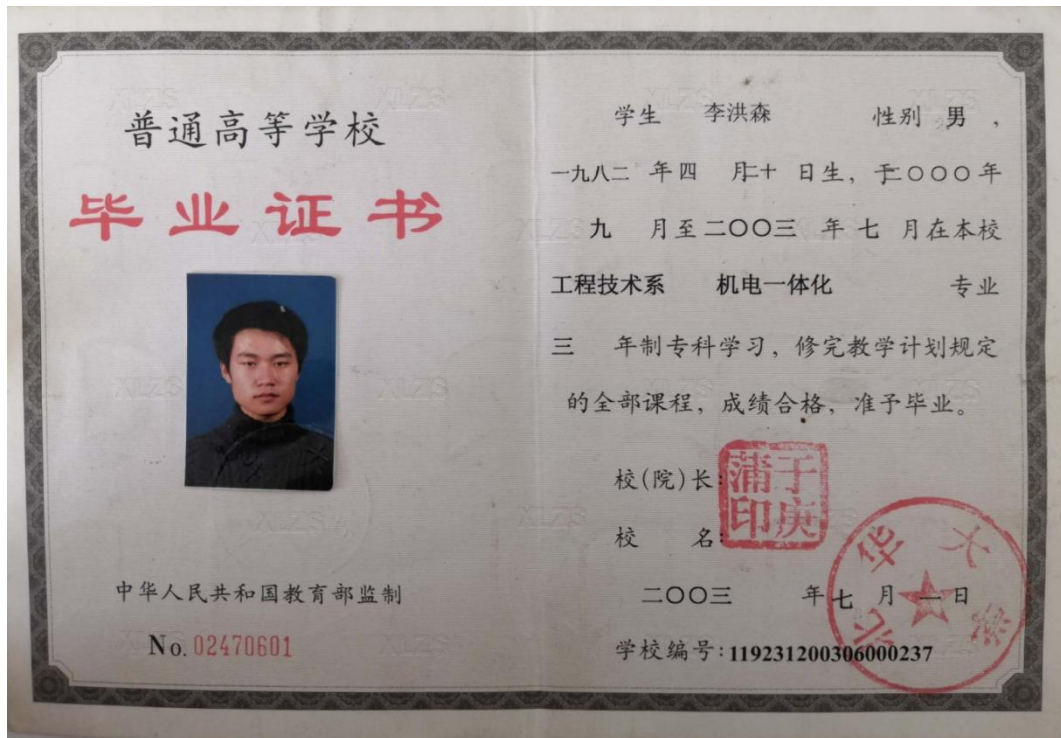 普通高等学校
毕业证书
中华人民共和国教育部监制
No. 02470601
学生 李洪森 性别 男 ,
一九八二 年四 月二十 日生, 于二〇〇〇年
九 月至二〇〇三 年 七 月在本校
工程技术系 机电一体化 专业
三 年制专科学习, 修完教学计划规定
的全部课程, 成绩合格, 准予毕业。
校(院)长:
于庚蒲印
校 名:
二〇〇三 年七 月 一 日
学校编号:119231200306000237
XLZS